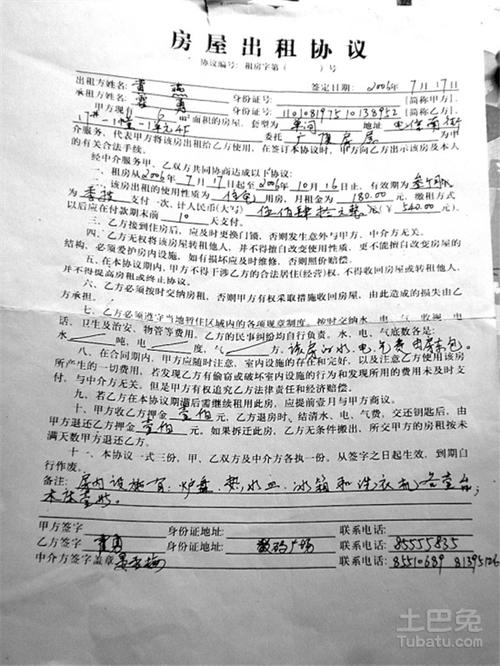 房屋出租协议
协议编号:租房字第( )号
签定日期:2006年7月17日
出租方姓名: 身份证号: [简称甲方]
承租方姓名: 勇 身份证号: [简称乙方]
甲方现有 6 面积的房屋,套型为 单间 地址
委托
介服务,代表甲方将该房出租给乙方使用,在签订本协议时,甲方向乙方出示该房及本人
的有关合法手续。
经中介服务甲、乙双方共同协商达成以下协议:
一、租房从2006年7月17日起至2006年10月16日止,有效期为 叁个月
二、该房出租的使用性质为 住宿 用房,月租金为 180.00 元,缴租方式
为 季 支付一次,计人民币(大写) 伍佰肆拾元整 (¥ 540.00 元),
以后应在付款期末前 10 天支付。
三、乙方接到住房后,应及时更换门锁,否则发生意外与甲方、中介方无关。
四、乙方无权将该房屋转租他人,并不得擅自改变使用性质。更不能擅自改变房屋的
结构,必须爱护房内设施,如有损坏应及时维修,否则照价赔偿。
五、在本协议期内,甲方不得干涉乙方的合法居住(经营)权,不得收回房屋或转租他人,
并不得提高房租或终止协议。
六、乙方必须按时交纳房租,否则甲方有权采取措施收回房屋,由此造成的损失由乙
方承担。
七、乙方必须遵守当地暂住区域内的各项规章制度。按时交纳水、电、气、收视、电
话、卫生及治安、物管等费用。乙方的民事纠纷均自行负责。水、电、气底数各是:
水 吨,电 度,气 方。该房的水电 费由房东包。
八、在合同期内,甲方应随时注意,室内设施的存在和完好,以及注意乙方使用该房
所产生的一切费用,若发现乙方有偷窃或破坏室内设施的行为和发现所用的费用未及时支
付,与中介方无关。但是甲方有权追究乙方法律责任和经济赔偿。
九、若乙方在本协议期满后需继续租用此房,应提前壹月与甲方商议。
十、甲方收乙方押金 壹佰 元,乙方退房时、结清水、电、气费,交还钥匙后,由
甲方退还乙方押金 壹佰 元。如果拆迁此房,乙方无条件搬出,所交甲方的房租按未
满天数甲方退还乙方。
十一、本协议一式三份,甲、乙双方及中介方各执一份。从签字之日起生效,到期自
行作废。
备注:房内设施有:炉盘、热水器、冰箱和洗衣机各壹台;
木床壹张。
甲方签字 身份证地址: 联系电话:
乙方签字 勇 身份证地址: 数码广场 联系电话: 85555835
中介方签字盖章 联系电话: 85510689 81395126
土巴兔
Tubatu.com